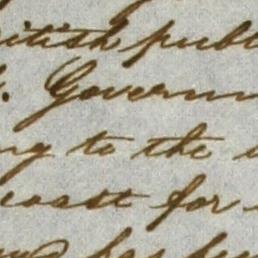 ritish publ
. Governm
ng to the
coast for
has